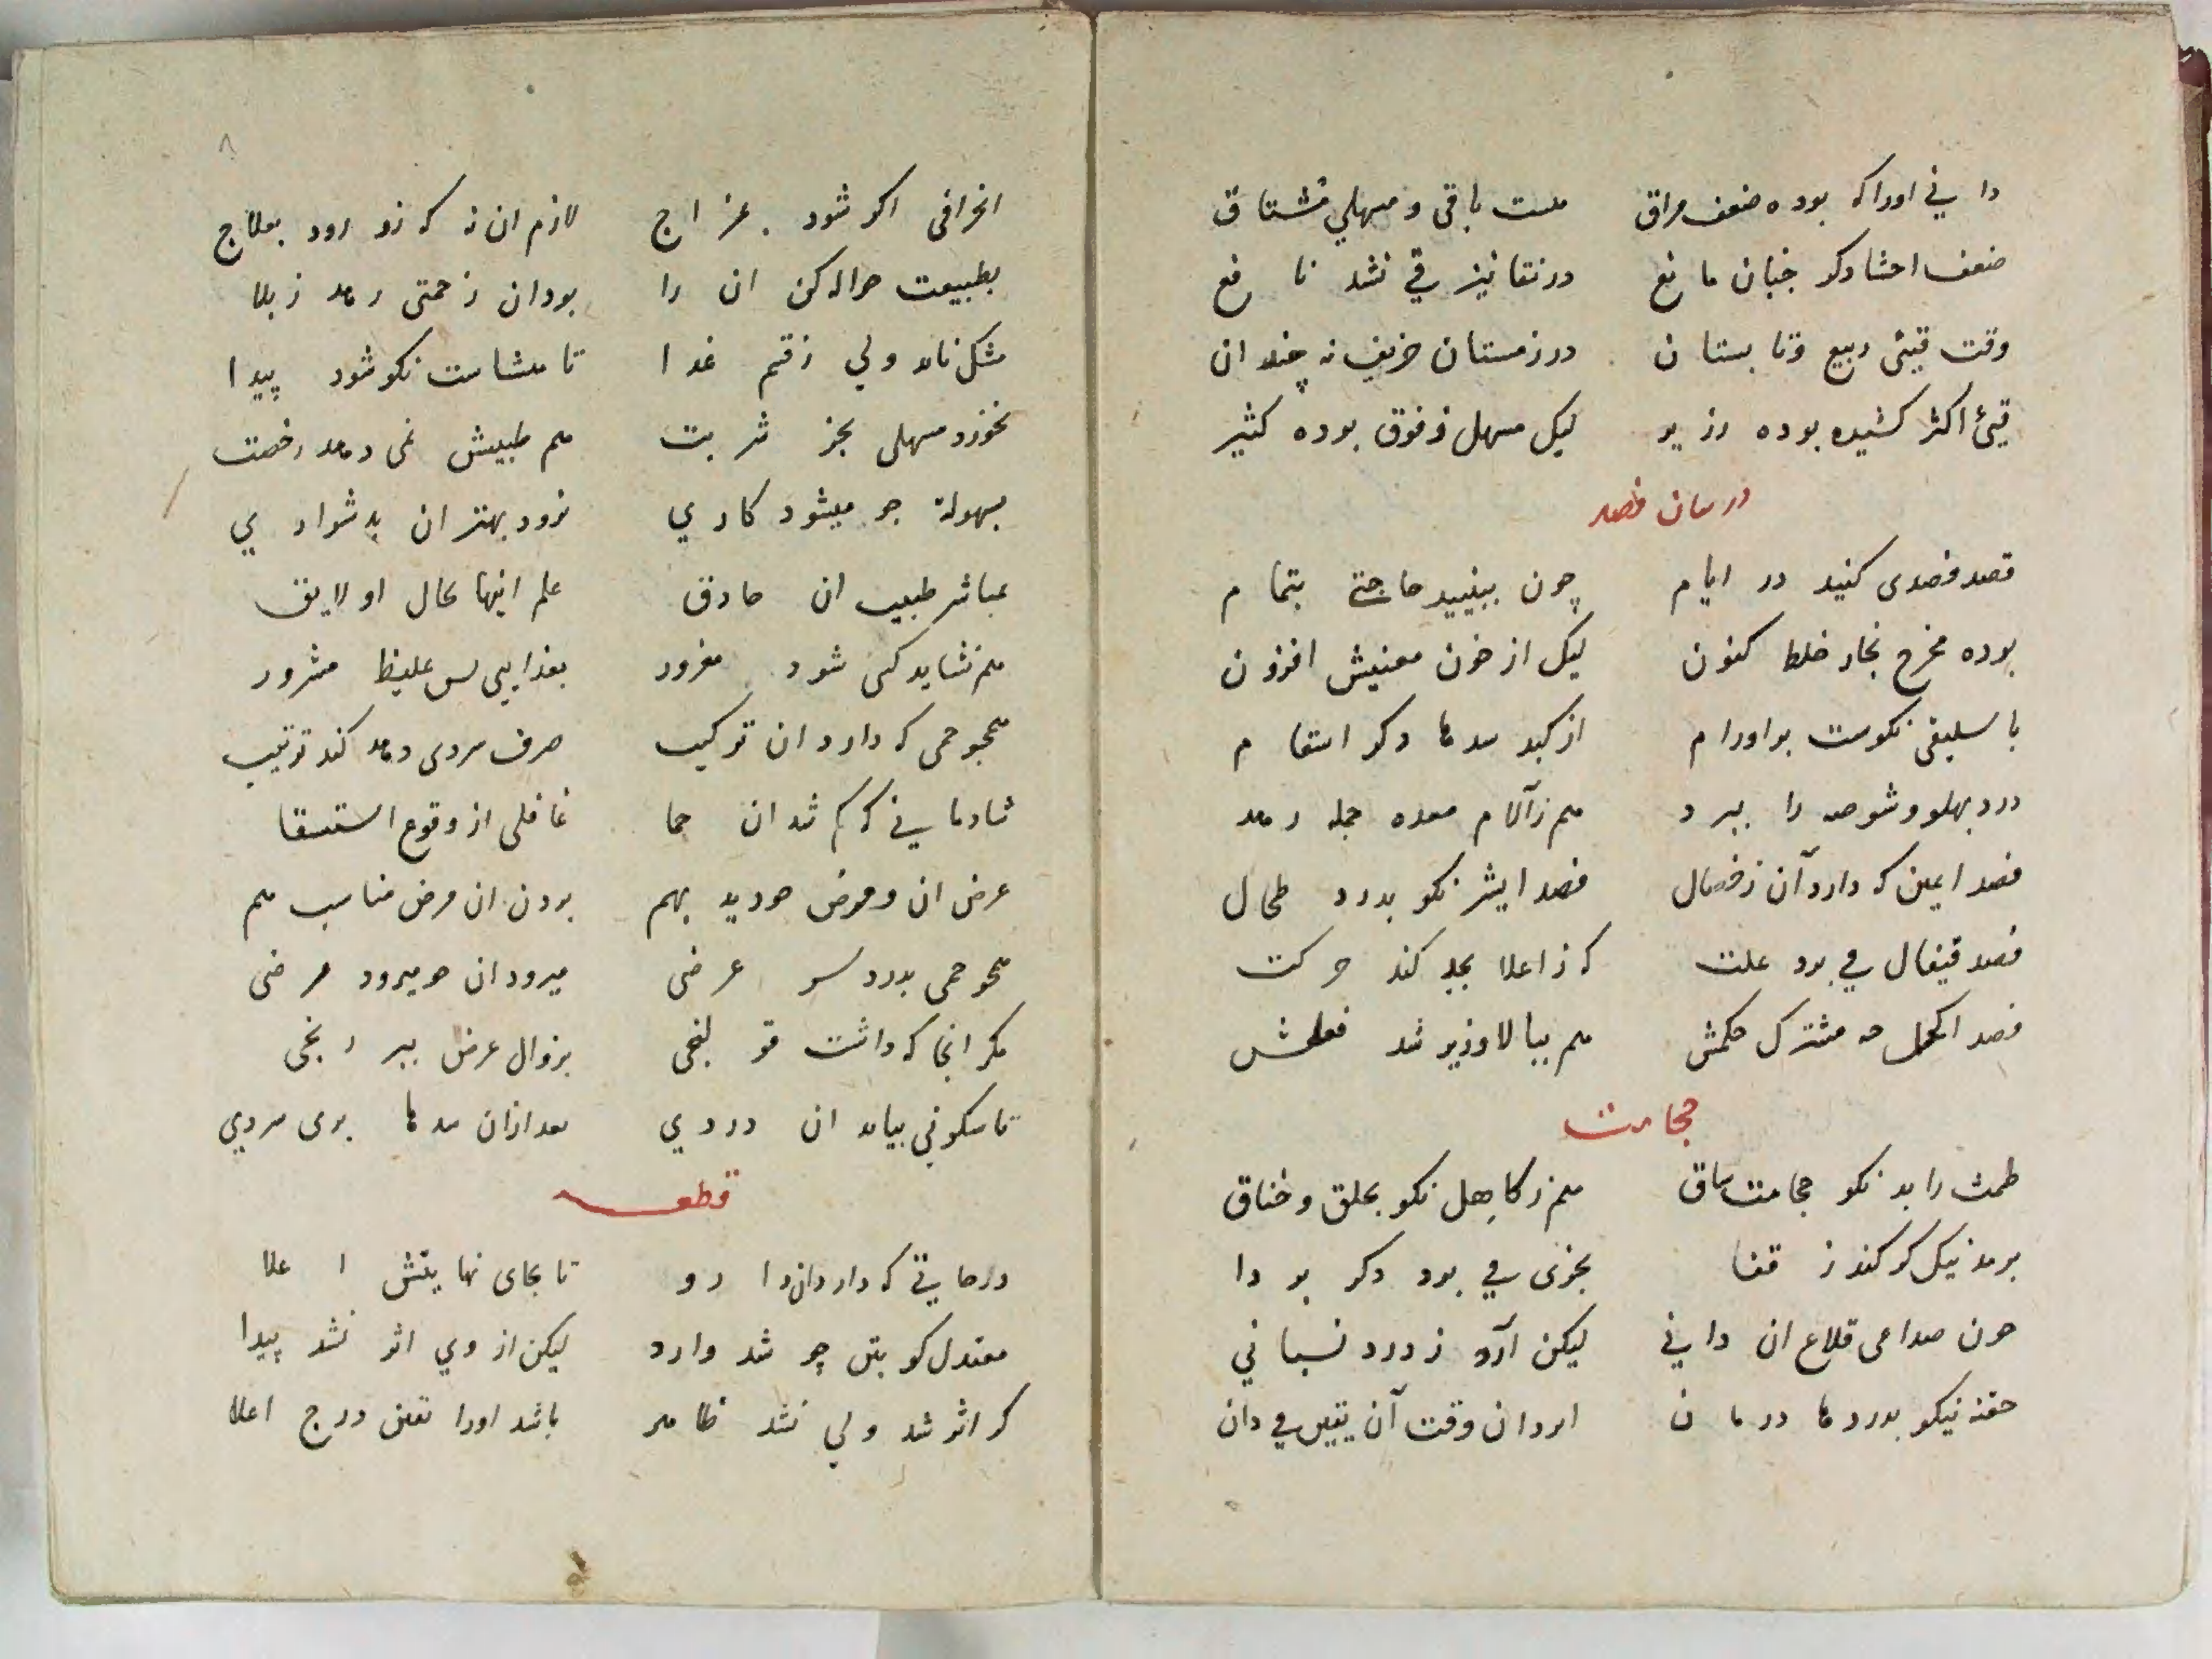 دانی اورا که بوده ضعف مراق هست باقی و مسهلی مشتاق
ضعف احشا دکر خبان مانع در نقا نیز قی نشد نافع
وقت قیئی ربیع و تابستان در زمستان خریف نه چندان
قیئ اکثر کشیده بوده زیر لیک مسهل ز فوق بوده کثیر
در بیان فصد
قصد فصدی کنید در ایام چون ببینید حاجتی بتمام
بوده مخرج بخار خلط کنون لیک از خون معنیش افزون
باسلیقی نکوست بر اورام از کبد سدها دکر اسقام
درد پهلو و شوصه را ببرد هم ز آلام معده جمله رهد
فصد ایمن که دارد آن ز فصال فصد ایسر نکو بدرد طحال
فصد قیفال می برد علت که ز اعلا بجد کند حرکت
فصد اکحل مشترک حکمش هم ببالا و زیر شد فعلش
حجامت
طمث را بد نکو حجامت ساق هم ز کاهل نکو بحلق و خناق
برمد نیک کر کند ز قفا بخری می برد دکر بو دا
چون صداعی قلاع ان دانی لیکن آرد ز درد نسیانی
حقنه نیکو بدردها درمان ابردان وقت آن یقین می دان
انحرافی اکر شود بمزاج لازم ان نه که زو رود بعلاج
بطبیعت حواله کن ان را بود ان زحمتی رهد ز بلا
مشکل ناید ولی ز قسم غدا تا مشامت نکو شود پیدا
نخورد مسهلی بجز شربت هم طبیبش نمی دهد رخصت
بسهولة چو میشود کاری نرود بهتر ان بدشواری
مباشر طبیب ان حاذق علم اینها بحال او لایق
هم نشاید کسی شود مغرور بغذایی بس غلیظ مشرور
همچو حمی که دارد ان ترکیب صرف سردی دهد کند ترتیب
شادمانی که کم شد ان حما غافلی از وقوع استسقا
عرض ان و مرض چو دید بهم بردن ان مرض مناسب هم
همچو حمی بدرد سر عرضی میرود ان چو میرود مرضی
مکر انجا که داشت قولنجی بزوال عرض ببر رنجی
تا سکونی بیابد ان دردی بعد ازان سدها بری سردی
قطعه
درجاتی که دارد از دارو تا بجای نهایتش اعلا
معتدل کو بتن چو شد وارد لیکن از وی اثر نشد پیدا
کر اثر شد ولی نشد ظاهر باشد اورا نخستین درج اعلا